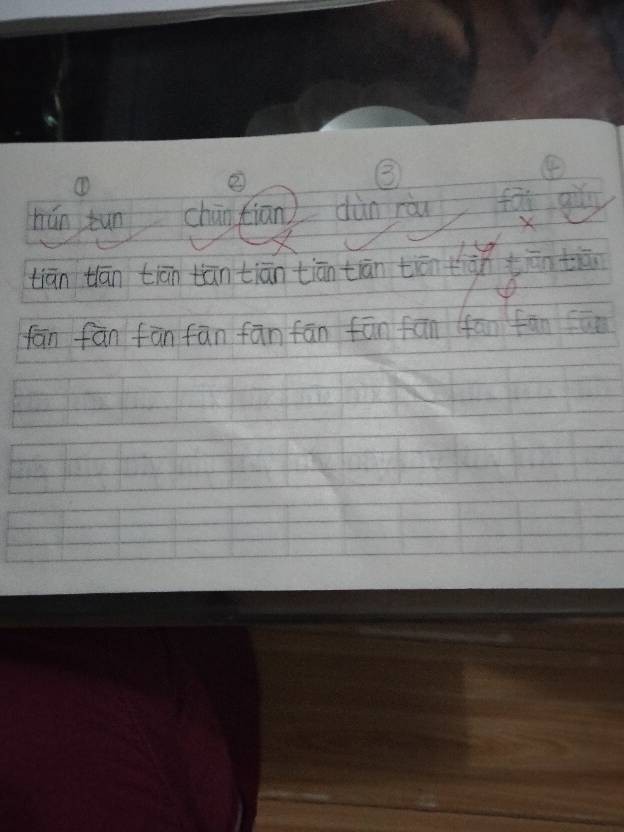 ① ② ③ ④
hún tun chūn tiān dùn ròu fāi gǔn
tiān tiān tiān tiān tiān tiān tiān tiān tiān tiān tiān
fān fān fān fān fān fān fān fān fān fān fān